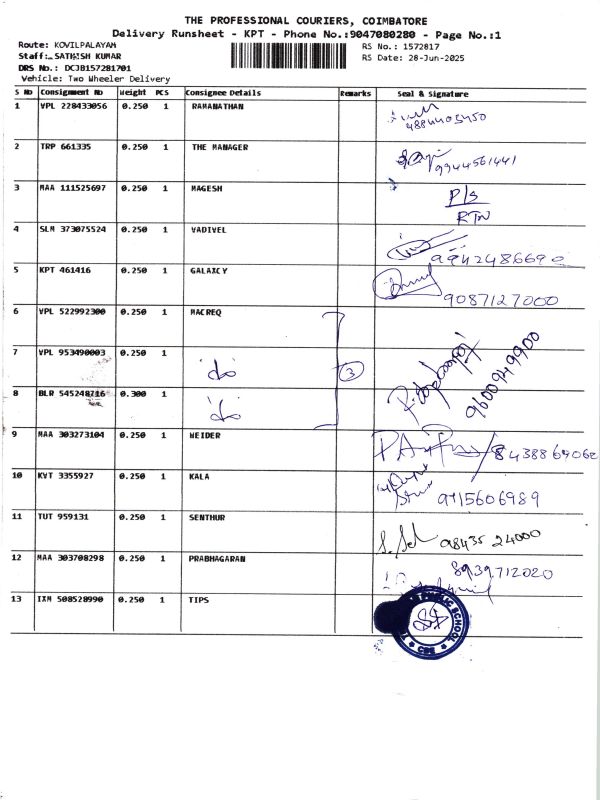 THE PROFESSIONAL COURIERS, COIMBATORE
Delivery Runsheet - KPT - Phone No.:9047080280 - Page No.:1
Route: KOVILPALAYAM
Staff: SATHISH KUMAR
DRS No.: DCJB157281701
Vehicle: Two Wheeler Delivery
RS No.: 1572817
RS Date: 28-Jun-2025
S No Consignment No Weight PCS Consignee Details Remarks Seal & Signature
1 VPL 228433056 0.250 1 RAMANATHAN
2 TRP 661335 0.250 1 THE MANAGER 9944561441
3 MAA 111525697 0.250 1 MAGESH P/S
RTN
4 SLM 373075524 0.250 1 VADIVEL 9942486690
5 KPT 461416 0.250 1 GALAXCY 9087127000
6 VPL 522992300 0.250 1 MACREQ
7 VPL 953490003 0.250 1 "do" 3 9600949900
8 BLR 545248716 0.300 1 "do"
9 MAA 303273104 0.250 1 WEIDER 8438869062
10 KVT 3355927 0.250 1 KALA 9715606989
11 TUT 959131 0.250 1 SENTHUR 98435 24000
12 MAA 303708298 0.250 1 PRABHAGARAN 8939712020
13 IXM 508528990 0.250 1 TIPS
PUBLIC SCHOOL
CBE